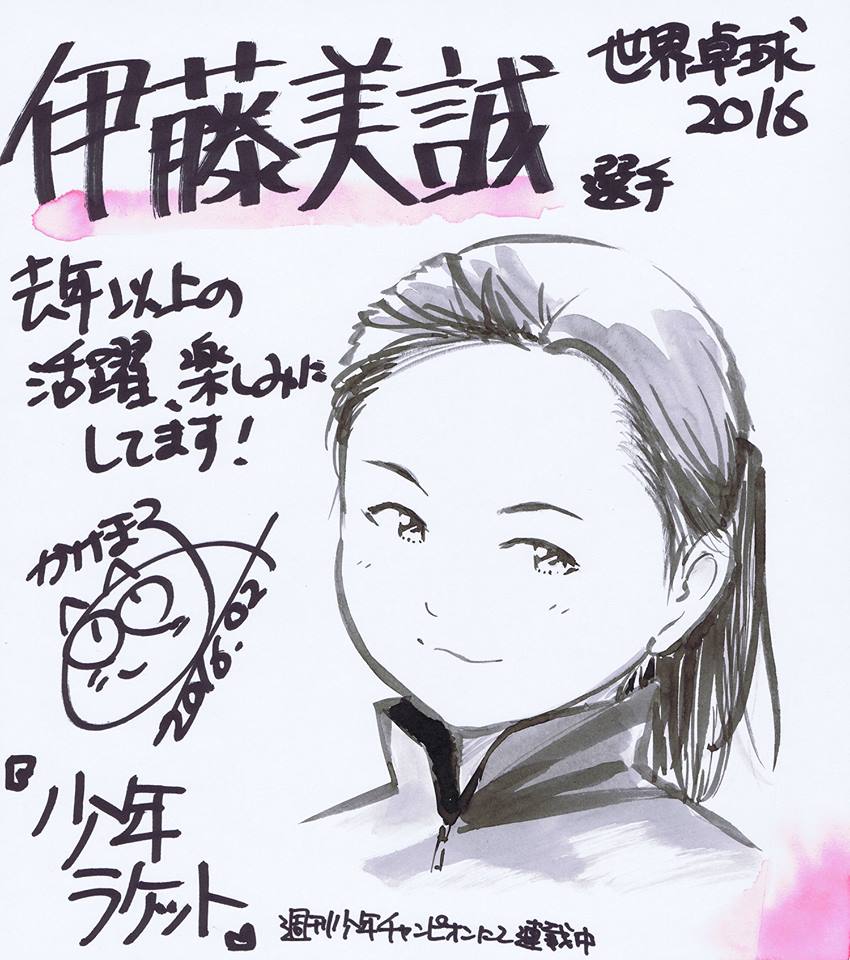 世界卓球
2016
伊藤美誠
選手
去年以上の
活躍、楽しみに
してます!
かけまる
2016.02
『少年
ラケット』
週刊少年チャンピオンにて連載中